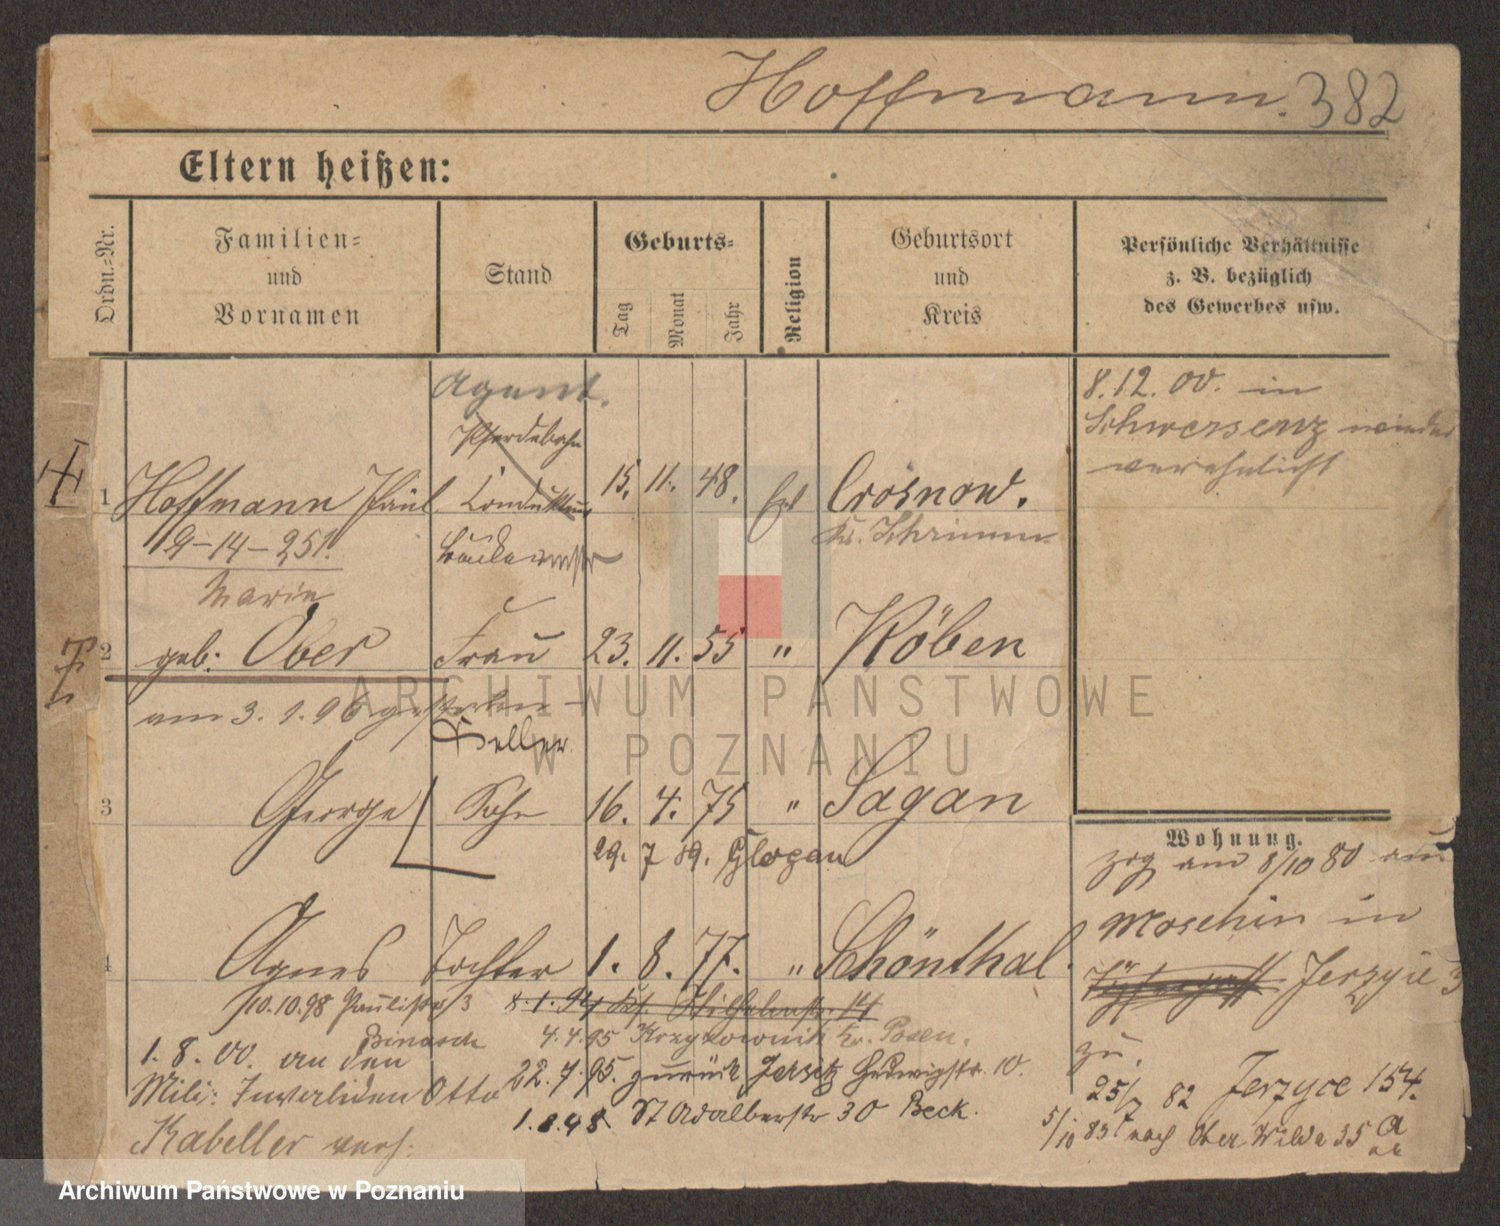 Hoffmann. 382
Eltern heißen:
Ordn.-Nr.
Familien- und Vornamen
Stand
Geburts-
Tag Monat Jahr
Religion
Geburtsort und Kreis
Persönliche Verhältnisse z. B. bezüglich des Gewerbes usw.
Agent.
8.12.00. in
Pferdebahn
Schwersenz wieder
verehelicht
1 Hoffmann Paul Kondukteur 15. 11. 48. Egl Crosnow.
19-14-251.
Kr. Schrimm
Marie
2 geb: Ober Frau 23. 11. 55 " Köben
am 3.1.96 gestorben
Keller
3 George Sohn 16. 4. 75 " Sagan
29. 7 89. Glogau
Wohnung.
zog am 8/10 80 aus
Moschin in
4 Agnes Tochter 1. 8. 77. " Schönthal.
Jerzyce 3
10.10.98 Paulistr 3
8.1.94 Wilhelmstr. 14
4.4.95 Krzyzownik Kr. Posen.
zu.
1. 8. 00. an den
22.7.95. zurück Jersitz Hedwigstr. 10.
25/7 82 Jerzyce 154.
Milit: Invaliden Otto
1.8.98. St Adalbertstr 30 Beck.
5/10 83 nach Ober Wilda 35 a
Kabeller verh:
ARCHIWUM PAŃSTWOWE
W POZNANIU
Archiwum Państwowe w Poznaniu